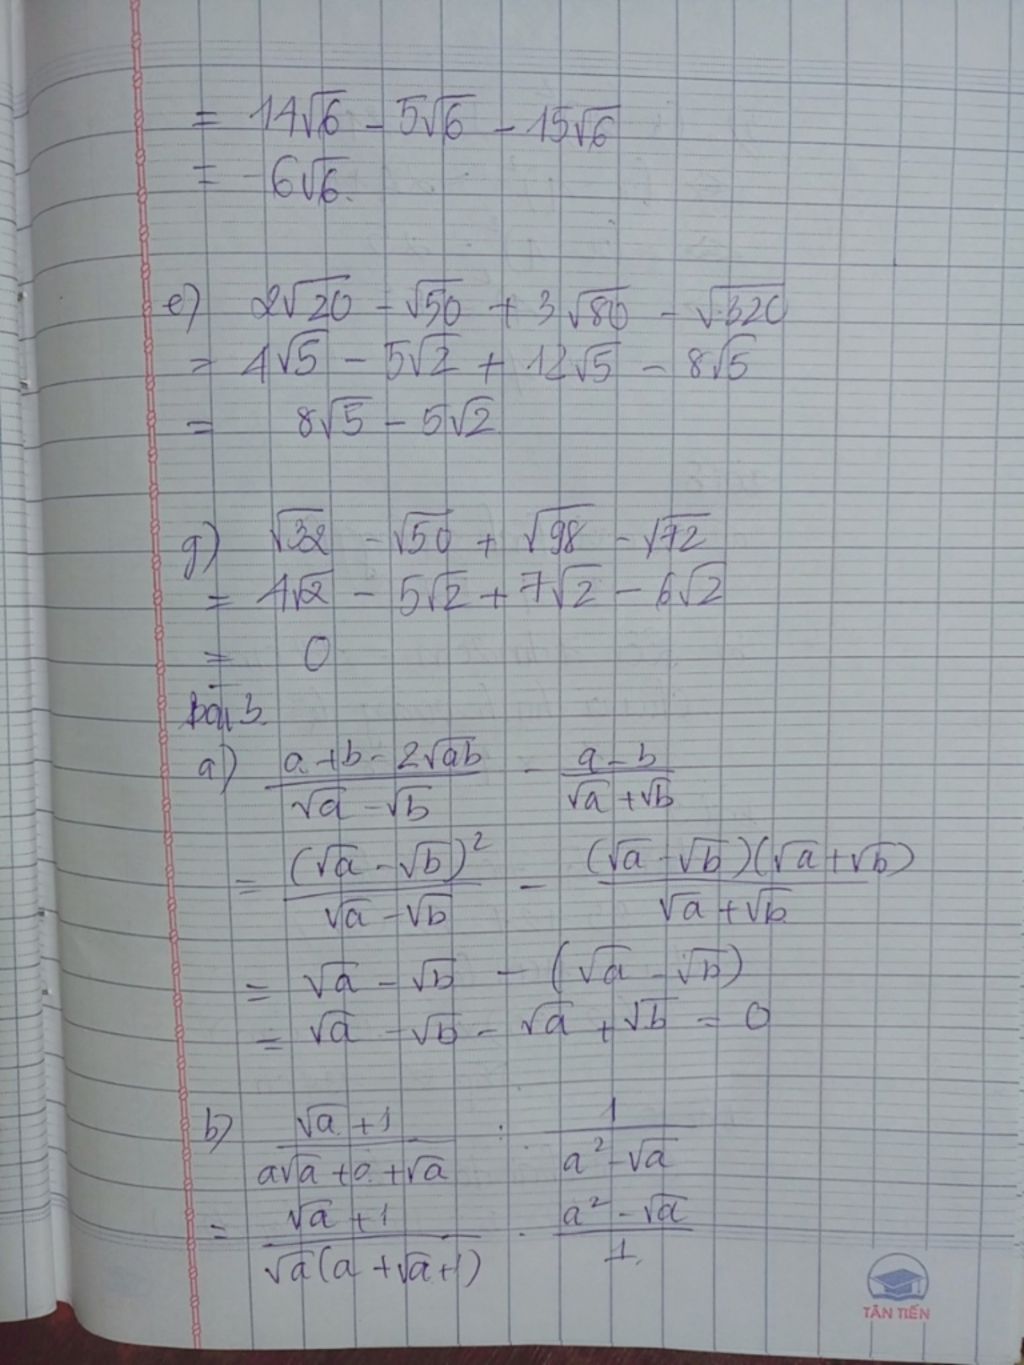 = 14√6 - 5√6 - 15√6
= -6√6.
e) 2√20 - √50 + 3√80 - √320
= 4√5 - 5√2 + 12√5 - 8√5
= 8√5 - 5√2
g) √32 - √50 + √98 - √72
= 4√2 - 5√2 + 7√2 - 6√2
= 0
bài 3.
a) (a + b - 2√ab)/(√a - √b) - (a - b)/(√a + √b)
= (√a - √b)²/(√a - √b) - (√a - √b)(√a + √b)/(√a + √b)
= √a - √b - (√a - √b)
= √a - √b - √a + √b = 0
b) (√a + 1)/(a√a + a + √a) : 1/(a² - √a)
= (√a + 1)/(√a(a + √a + 1)) . (a² - √a)/1.
TÂN TIẾN